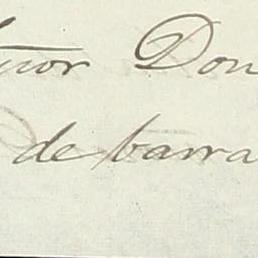 ñor Don
de barra